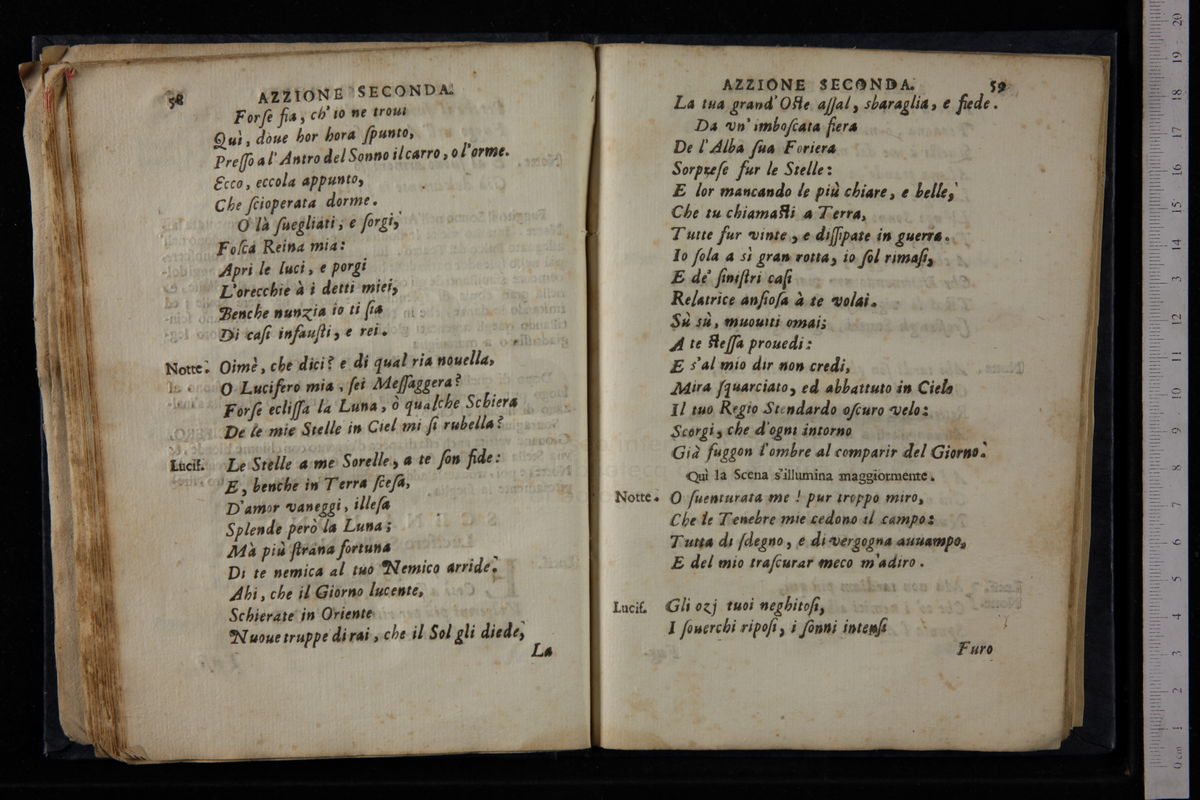 58 AZZIONE SECONDA.
Forſe fia, ch'io ne troui
Quì, doue hor hora ſpunto,
Preſſo a l'Antro del Sonno il carro, o l'orme.
Ecco, eccola appunto,
Che ſcioperata dorme.
O là ſuegliati, e ſorgi,
Foſca Reina mia:
Apri le luci, e porgi
L'orecchie à i detti miei,
Benche nunzia io ti ſia
Di caſi infauſti, e rei.
Notte. Oimè, che dici? e di qual ria nouella,
O Lucifero mia, ſei Meſſaggera?
Forſe ecliſſa la Luna, ò qualche Schiera
De le mie Stelle in Ciel mi ſi rubella?
Lucif. Le Stelle a me Sorelle, a te ſon fide:
E, benche in Terra ſceſa,
D'amor vaneggi, illeſa
Splende però la Luna;
Mà più ſtrana fortuna
Di te nemica al tuo Nemico arride.
Ahi, che il Giorno lucente,
Schierate in Oriente
Nuoue truppe di rai, che il Sol gli diede,
La
AZZIONE SECONDA. 59
La tua grand'Oſte aſſal, sbaraglia, e fiede.
Da vn' imboſcata fiera
De l'Alba ſua Foriera
Sorpreſe fur le Stelle:
E lor mancando le più chiare, e belle,
Che tu chiamaſti a Terra,
Tutte fur vinte, e diſſipate in guerra.
Io ſola a sì gran rotta, io ſol rimaſi,
E de' ſiniſtri caſi
Relatrice anſioſa à te volai.
Sù sù, muouiti omai;
A te ſteſſa prouedi:
E s'al mio dir non credi,
Mira ſquarciato, ed abbattuto in Cielo
Il tuo Regio Stendardo oſcuro velo:
Scorgi, che d'ogni intorno
Già fuggon l'ombre al comparir del Giorno.
Quì la Scena s'illumina maggiormente.
Notte. O ſuenturata me! pur troppo miro,
Che le Tenebre mie cedono il campo:
Tutta di ſdegno, e di vergogna auuampo,
E del mio traſcurar meco m'adiro.
Lucif. Gli ozj tuoi neghitoſi,
I ſouerchi ripoſi, i ſonni intenſi
Furo
0 cm 1 2 3 4 5 6 7 8 9 10 11 12 13 14 15 16 17 18 19 20